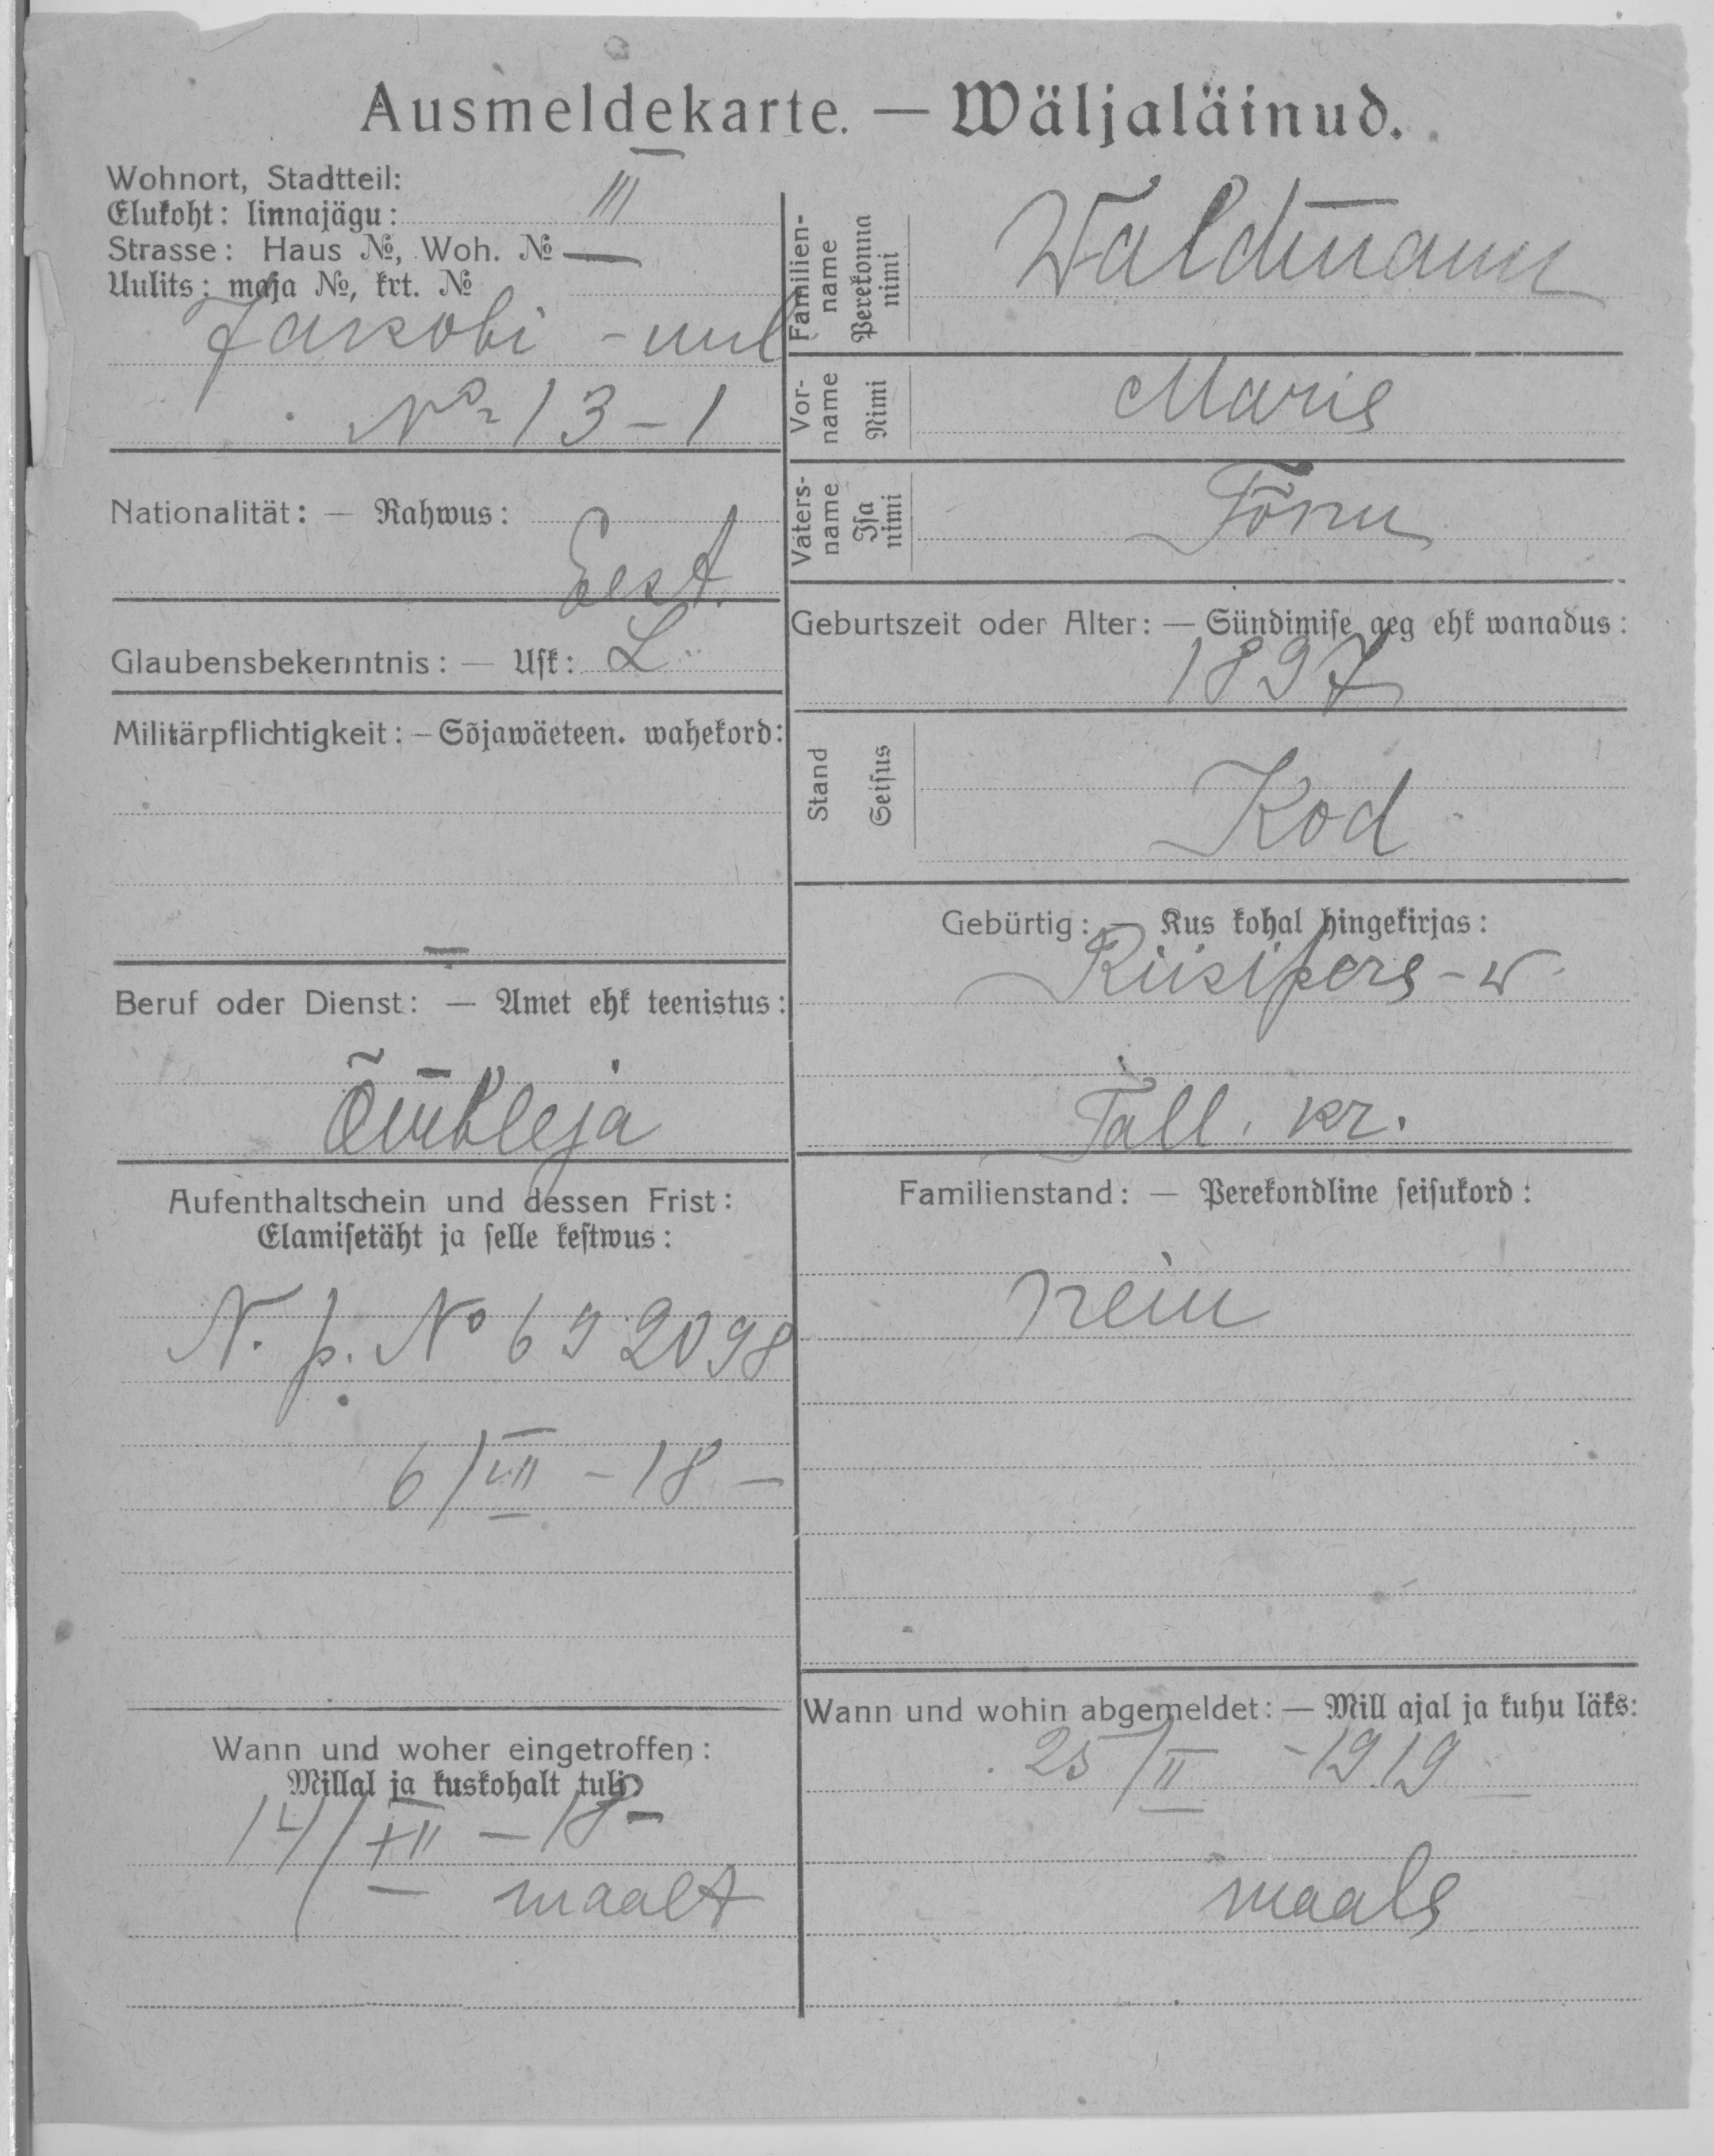 Ausmeldekarte. — Wäljaläinud.
Wohnort, Stadtteil:
Elukoht: linnajägu: III
Strasse: Haus №, Woh. №
Uulits: maja №, krt. №
Jakobi - uul
№ 13-1
Nationalität: — Rahwus:
Eest.
Glaubensbekenntnis: — Usk: L
Militärpflichtigkeit: — Sõjawäeteen. wahekord:
Beruf oder Dienst: — Amet ehk teenistus:
Õmbleja
Aufenthaltschein und dessen Frist:
Elamisetäht ja selle kestwus:
N. p. № 692098
6/VII - 18 -
Wann und woher eingetroffen:
Millal ja kuskohalt tuli
14/XII - 18 -
maalt
Familien-name Perekonna nimi Waldmann
Vor-name Nimi Marie
Vaters-name Isa nimi Tõnu
Geburtszeit oder Alter: — Sündimise aeg ehk wanadus:
1897
Stand Seisus Kod
Gebürtig: — Kus kohal hingekirjas:
Riisipere - w
Tall. kr.
Familienstand: — Perekondline seisukord:
nein
Wann und wohin abgemeldet: — Mill ajal ja kuhu läks:
25/II - 1919
maale